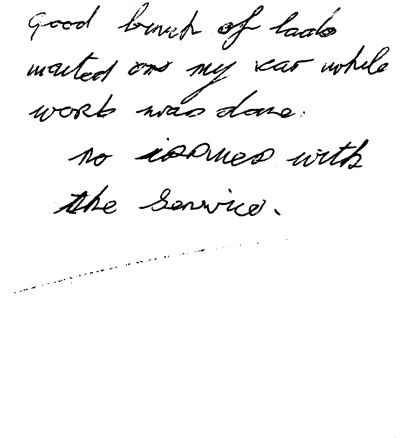 Good bunch of lads
waited on my car while
work was done.
no issues with
the service.